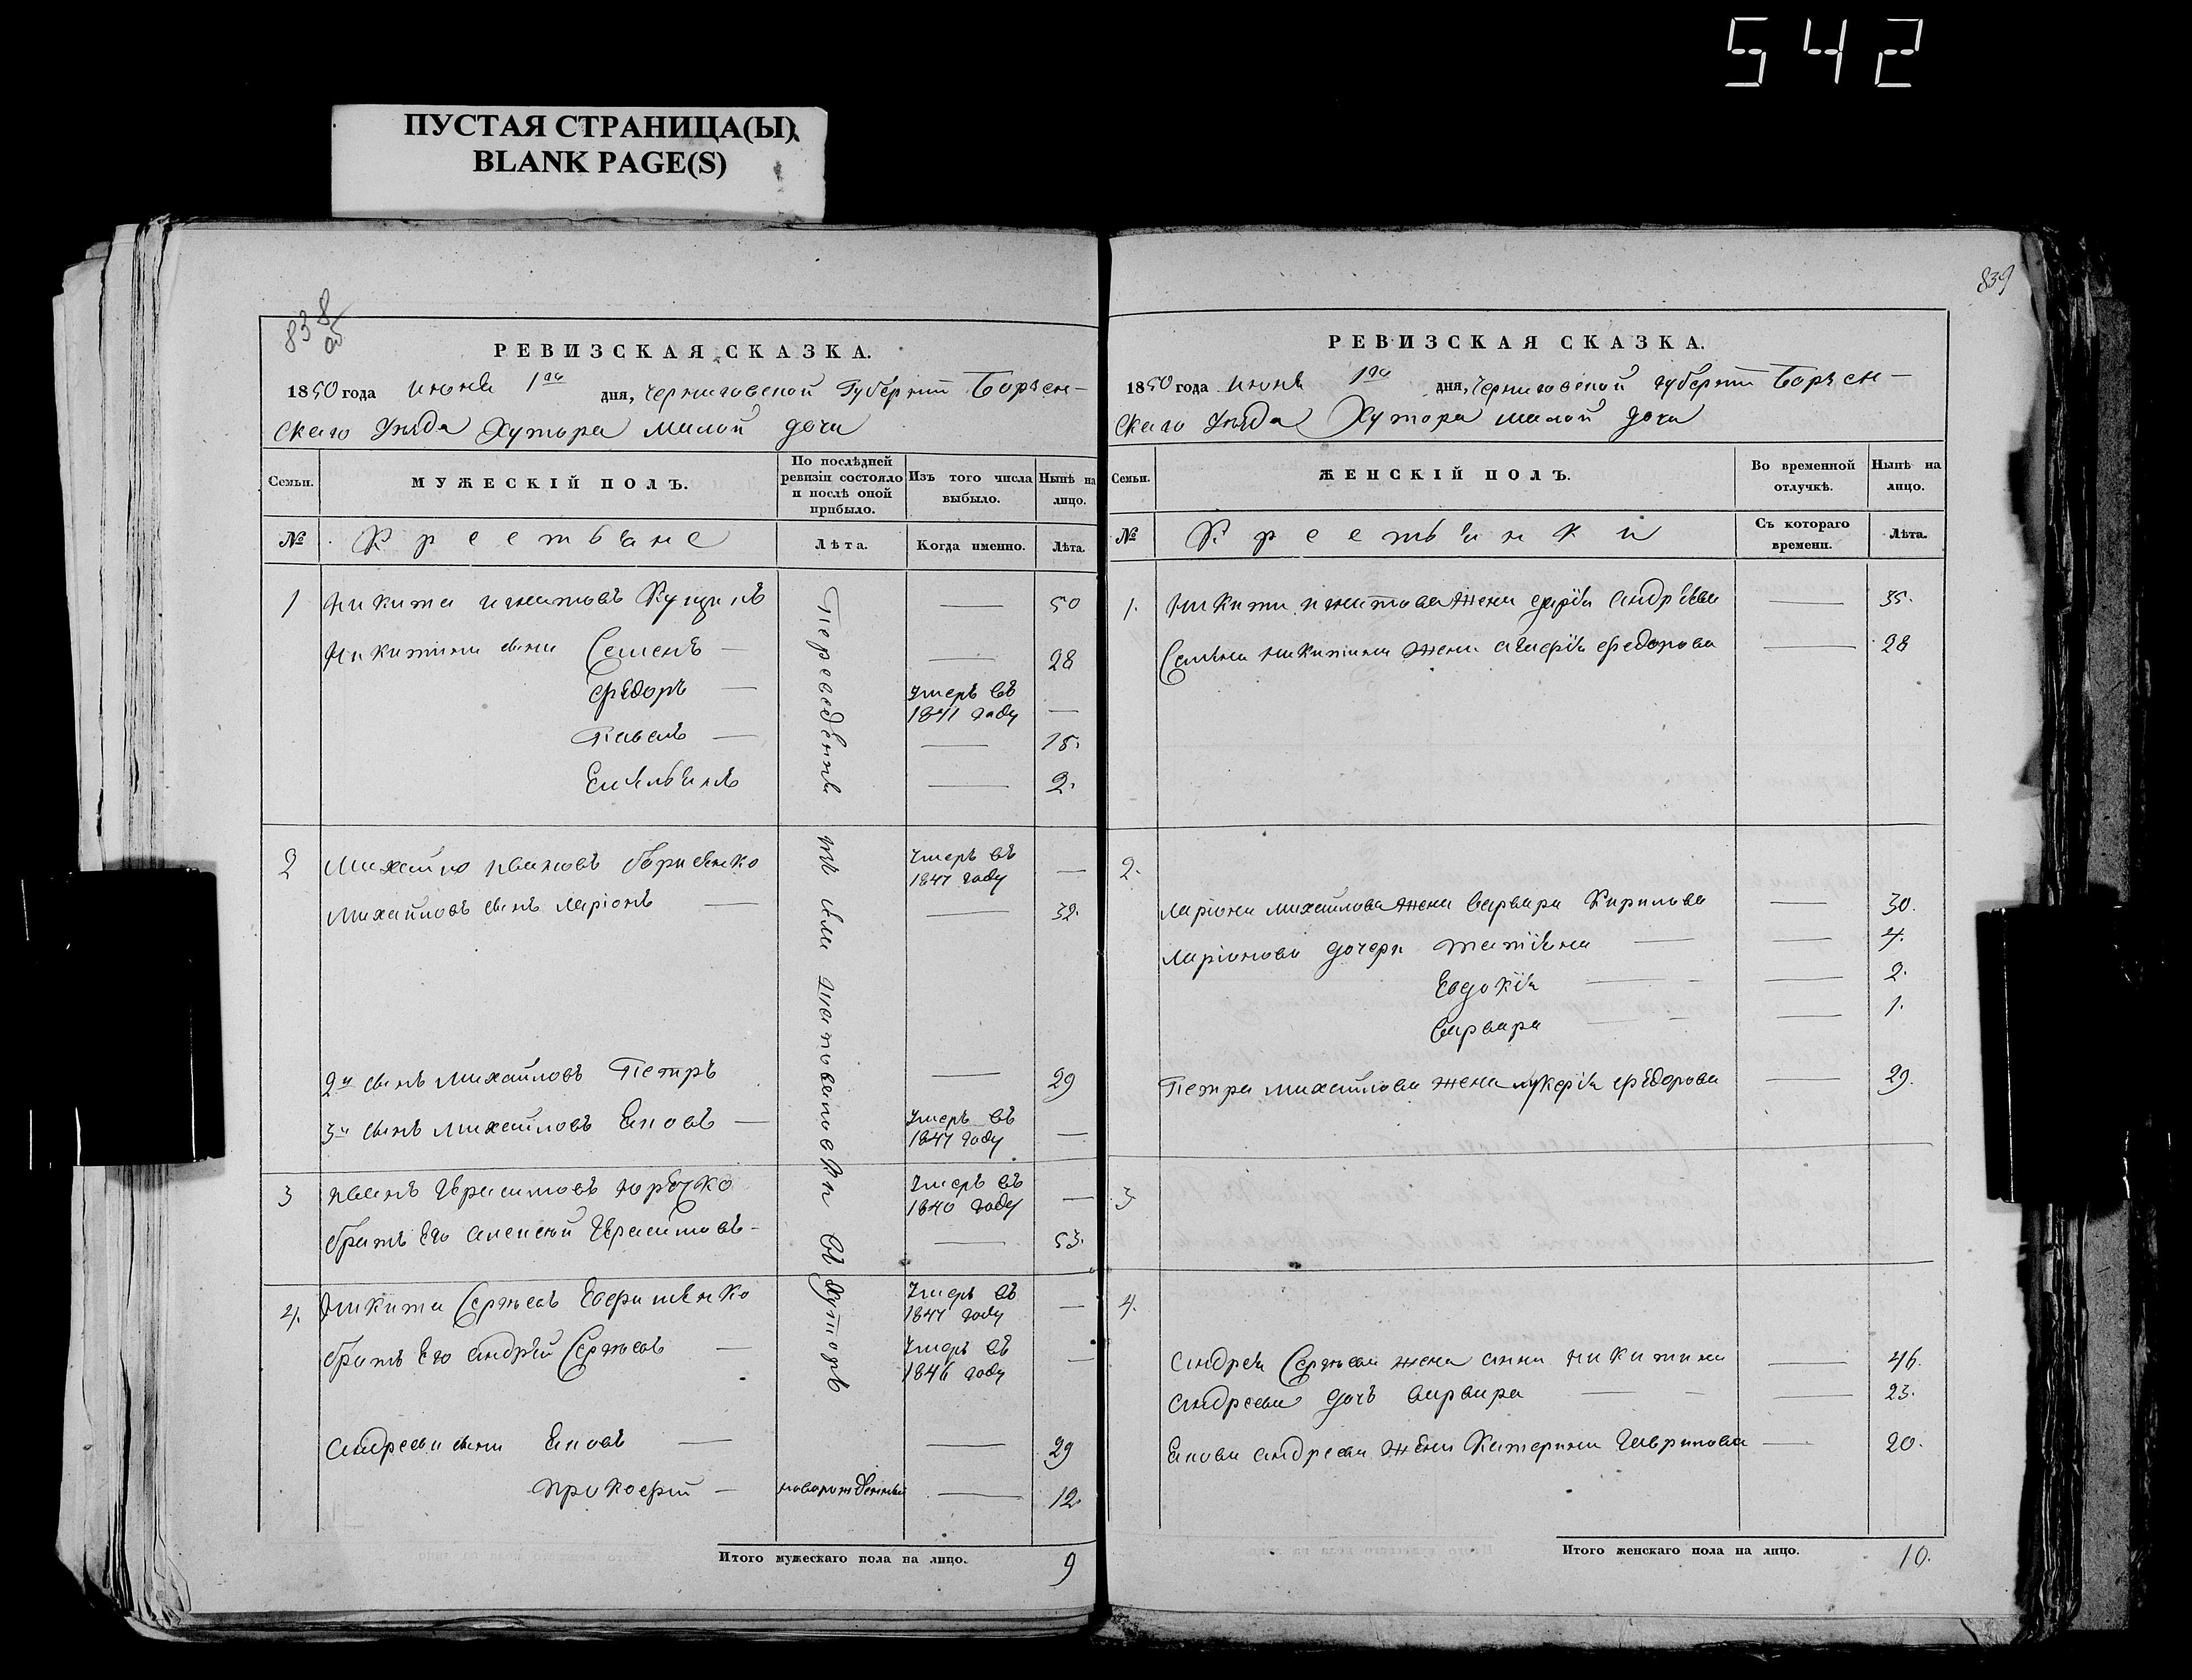 542
ПУСТАЯ СТРАНИЦА(Ы)
BLANK PAGE(S)
838
об
РЕВИЗСКАЯ СКАЗКА.
1850 года июня 1го дня, Черниговской Губернии Борзен-
скаго Уезда Хутора Малой дочи
Семьи. МУЖЕСКІЙ ПОЛЪ. По послѣдней ревизіи состояло и послѣ оной прибыло. Изъ того числа выбыло. Нынѣ на лицо.
№ Крестьяне Лѣта. Когда именно. Лѣта.
Переведены
изъ
в Хуторъ
1 Никита Игнатовъ 50
Никитины сыны Семенъ — 28
Федоръ — Умеръ въ 1841 году —
Павелъ — 15.
Емельянъ 2.
2 Михайло Ивановъ Умеръ въ 1847 году —
Михайловъ сынъ Ларіонъ — 32.
2й сынъ Михайловъ Петръ 29
3й сынъ Михайловъ Яковъ — Умеръ въ 1847 году —
3 Иванъ Герасимовъ Юрочко Умеръ въ 1840 году —
братъ Его Алексей Герасимовъ — 53.
4. Никита Сергеевъ Умеръ въ 1847 году —
братъ Его Андрей Сергеевъ — Умеръ въ 1846 году —
Андреевы сыны Яковъ — 29
Прокофий — новорожденный — 12.
Итого мужескаго пола на лицо. 9
839
РЕВИЗСКАЯ СКАЗКА.
1850 года июня 1го дня, Черниговской губернии Борзен-
скаго Уезда Хутора малой дочи
Семьи. ЖЕНСКІЙ ПОЛЪ. Во временной отлучкѣ. Нынѣ на лицо.
№ Крестьянки Съ котораго времени. Лѣта.
1. Никиты Игнатова жена дарія Андреева — 35.
Семена Никитина жена Агафія Федорова — 28
2.
Ларіона Михайлова жена варвара Кирилова — 30.
Ларіонова дочери татіяна — 4.
Евдокія — 2.
варвара — 1.
Петра Михайлова жена лукерія Федорова — 29.
3
4.
Андрея Сергеева жена анна Никитина — 46.
Андреева дочь варвара — 23.
Якова Андреева жена Катерина Гаврилова — 20.
Итого женскаго пола на лицо. 10.